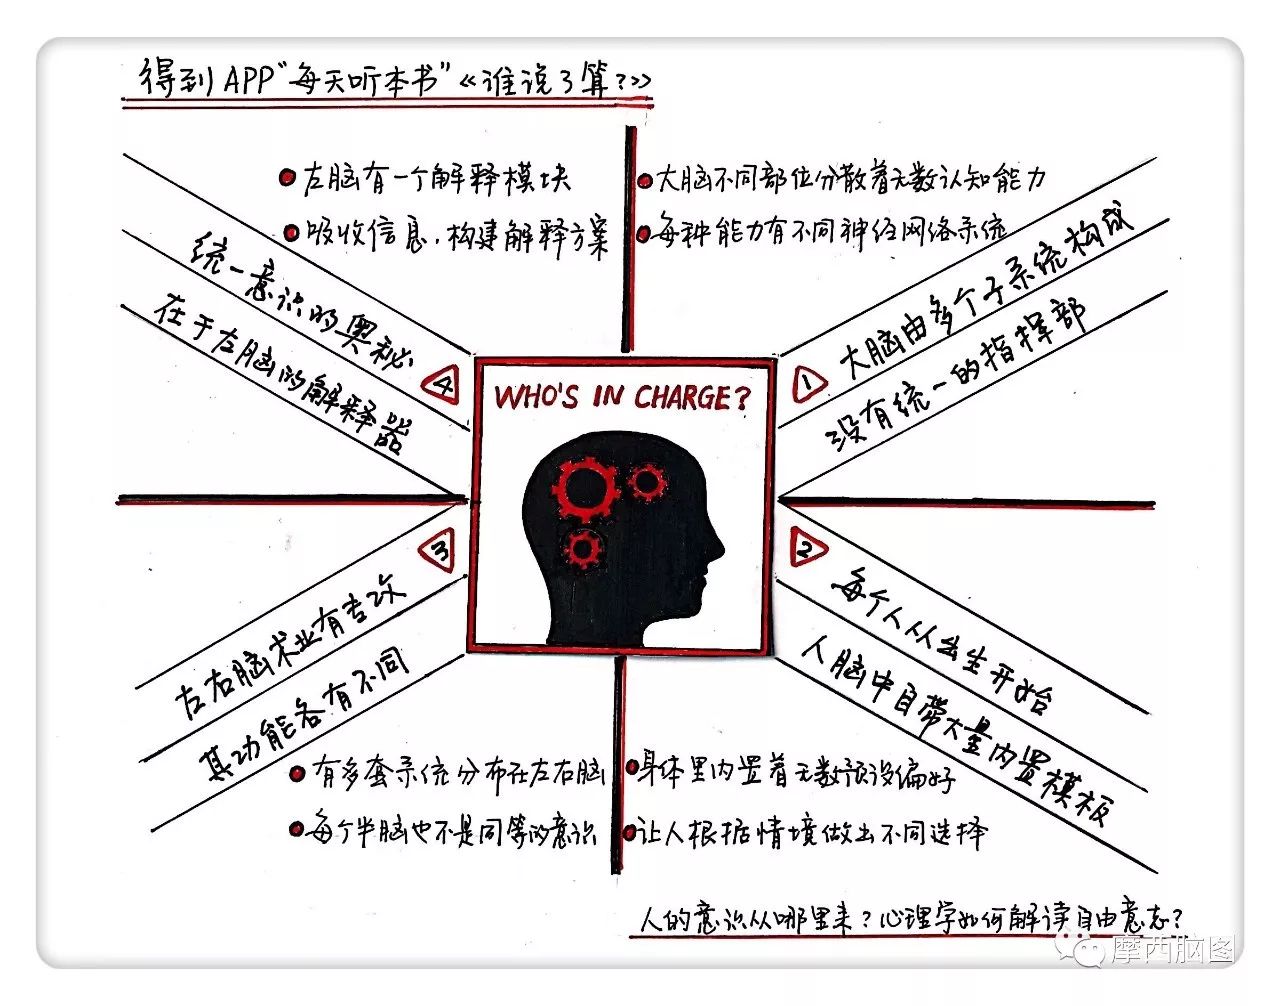 得到APP“每天听本书”《谁说了算?》
WHO'S IN CHARGE?
1
大脑由多个子系统构成
没有统一的指挥部
大脑不同部位分散着无数认知能力
每种能力有不同神经网络系统
2
每个人从出生开始
人脑中自带大量内置模板
身体里内置着无数预设偏好
让人根据情境做出不同选择
3
左右脑术业有专攻
其功能各有不同
有多套系统分布在左右脑
每个半脑也不是同等的意识
4
统一意识的奥秘
在于左脑的解释器
左脑有一个解释模块
吸收信息,构建解释方案
人的意识从哪里来?心理学如何解读自由意志?
摩西脑图